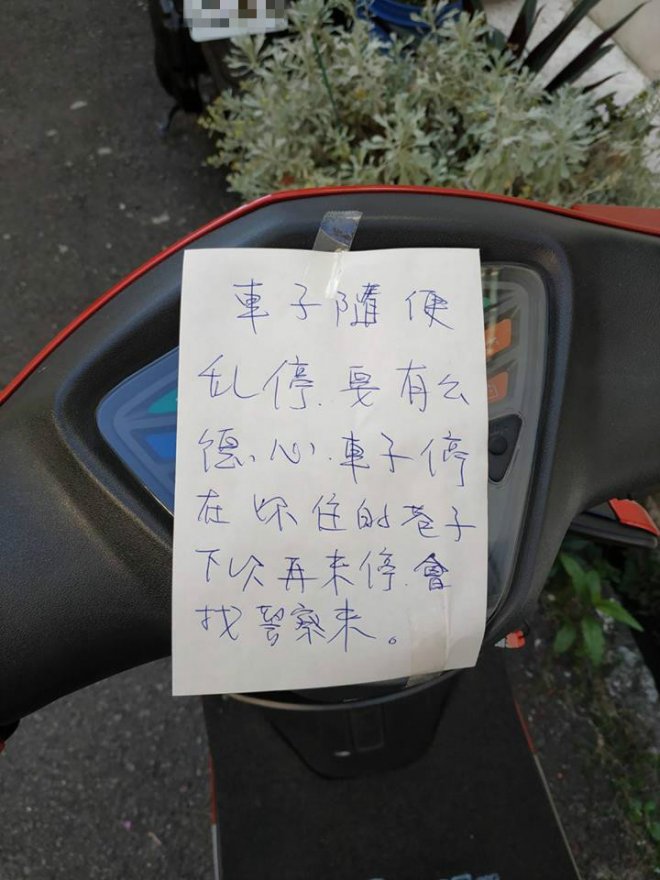 車子隨便
乱停.要有公
德心.車子停
在你住的巷子
下次再来停.會
找警察来。